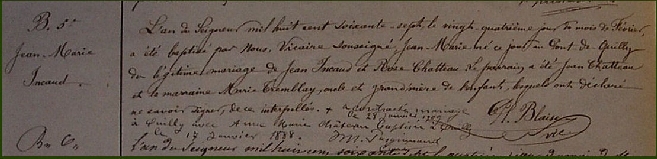 B. 5e
Jean-Marie
Tucaud.
L'an du Seigneur mil huit cent soixante-sept, le vingt quatrième jour du mois de Février,
a été baptisé par Nous, Vicaire soussigné, Jean-Marie né ce jour au Pont de Quilly
du légitime mariage de Jean Tucaud et Rose Chatteau. Le parrain a été Jean Chatteau
et la marraine Marie Tremblay, oncle et grand'mère de l'enfant, lesquels ont déclaré
ne savoir signer, de ce interpellés. + contracté mariage
à Quilly avec Anne Marie château, baptisée à Quilly
le 17 janvier 1888.
Blais
vic.
B. 6e
L'an du Seigneur mil huit cent soixante-sept, le